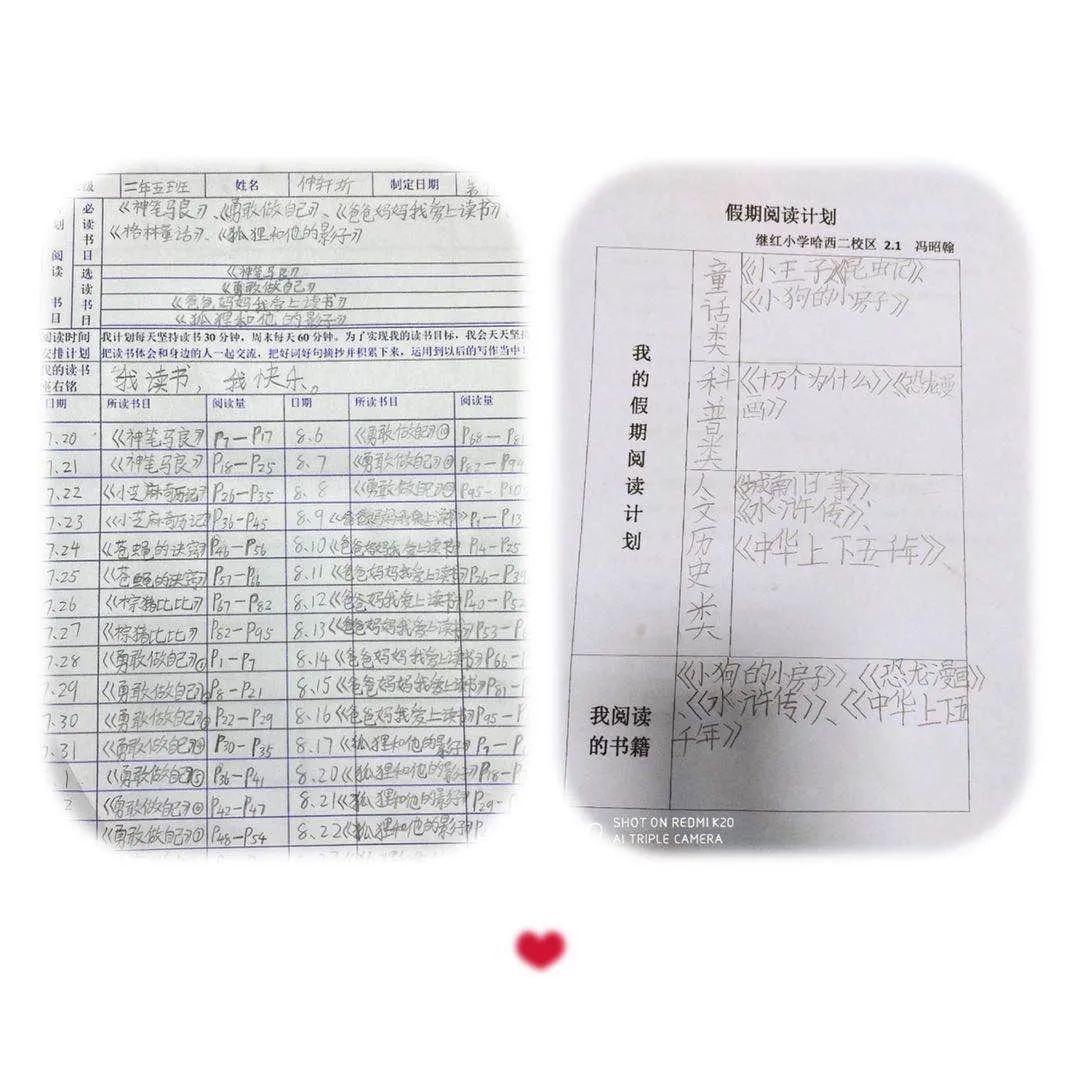 级 二年五班 姓名 仲轩圻 制定日期
必读书目 《神笔马良》、《勇敢做自己》、《爸爸妈妈我爱上读书》、
《格林童话》、《狐狸和他的影子》
选读书目 《神笔马良》
《勇敢做自己》
《爸爸妈妈我爱上读书》
《狐狸和他的影子》
阅读时间 我计划每天坚持读书30分钟，周末每天60分钟。为了实现我的读书目标，我会天天坚持
安排计划 把读书体会和身边的人一起交流，把好词好句摘抄并积累下来，运用到以后的写作当中！
我的读书
座右铭 我读书，我快乐。
日期 所读书目 阅读量 日期 所读书目 阅读量
7.20 《神笔马良》 P7—P17 8.6 《勇敢做自己》 P68—
7.21 《神笔马良》 P18—P25 8.7 《勇敢做自己》 P82—
7.22 《小芝麻奇历记》 P26—P35 8.8 《勇敢做自己》 P95—
7.23 《小芝麻奇历记》 P36—P45 8.9 《爸爸妈妈我爱上读书》 P1—P13
7.24 《苍蝇的诀窍》 P46—P56 8.10 《爸爸妈妈我爱上读书》 P14—P25
7.25 《苍蝇的诀窍》 P57—P66 8.11 《爸爸妈妈我爱上读书》 P26—P39
7.26 《棕猪比比》 P67—P82 8.12 《爸爸妈妈我爱上读书》 P40—P52
7.27 《棕猪比比》 P82—P95 8.13 《爸爸妈妈我爱上读书》 P53—
7.28 《勇敢做自己》① P1—P7 8.14 《爸爸妈妈我爱上读书》 P66—
7.29 《勇敢做自己》 P8—P21 8.15 《爸爸妈妈我爱上读书》 P81—
7.30 《勇敢做自己》 P22—P29 8.16 《爸爸妈妈我爱上读书》 P95—
7.31 《勇敢做自己》 P30—P35 8.17 《狐狸和他的影子》 P7—
1 《勇敢做自己》⑤ P36—P41 8.20 《狐狸和他的影子》 P18—
2 《勇敢做自己》 P42—P47 8.21 《狐狸和他的影子》 P29—
《勇敢做自己》 P48—P54 8.22 《狐狸和他的影子》
假期阅读计划
继红小学哈西二校区 2.1 冯昭翰
我的假期阅读计划
童话类 《小王子》《昆虫记》
《小狗的小房子》
科普类 《十万个为什么》《恐龙漫
画》
人文历史类 《城南旧事》
《水浒传》、
《中华上下五千年》、
我阅读
的书籍
《小狗的小房子》、《恐龙漫画》
、《水浒传》、《中华上下五
千年》
SHOT ON REDMI K20
AI TRIPLE CAMERA